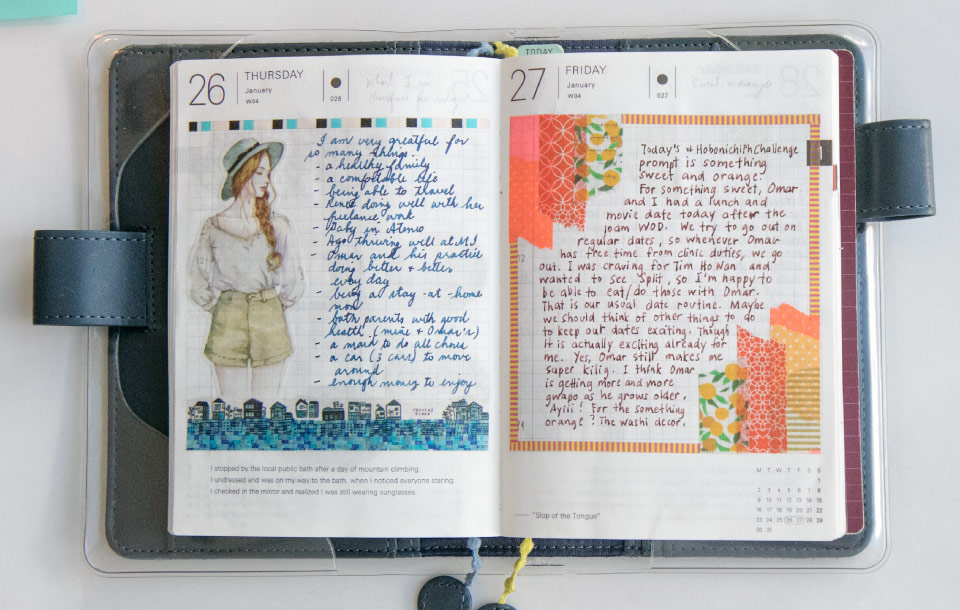 TODAY
26
THURSDAY
January
W04
026
What I am
thankful for today
I am very greatful for
so many things.
- a healthy family
- a comfortable life
- being able to travel
- Renee doing well with her
freelance work
- Gaby in Ateneo
- Ago thriving well at MI
- Omar and his practice
doing better & better
every day
- being a stay-at-home
mom
- both parents with good
health (mine & Omar's)
- a maid to do all chores
- a car (3 cars) to move
around
- enough money to enjoy
I stopped by the local public bath after a day of mountain climbing.
I undressed and was on my way to the bath, when I noticed everyone staring.
I checked in the mirror and realized I was still wearing sunglasses.
27
FRIDAY
January
W04
027
Sweet & orange
Today's #HobonichiPhChallenge
prompt is something
sweet and orange.
For something sweet, Omar
and I had a lunch and
movie date today after the
10am WOD. We try to go out on
regular dates, so whenever Omar
has free time from clinic duties, we go
out. I was craving for Tim Ho Wan and
wanted to see Split, so I'm happy to
be able to eat/do those with Omar.
That is our usual date routine. Maybe
we should think of other things to do
to keep our dates exciting. Though
it is actually exciting already for
me. Yes, Omar still makes me
super kilig. I think Omar
is getting more and more
gwapo as he grows older.
Ayiii! For the something
orange? The washi decor.
12
M T W T F S S
1
2 3 4 5 6 7 8
9 10 11 12 13 14 15
16 17 18 19 20 21 22
23 24 25 26 27 28 29
30 31
"Slop of the Tongue"